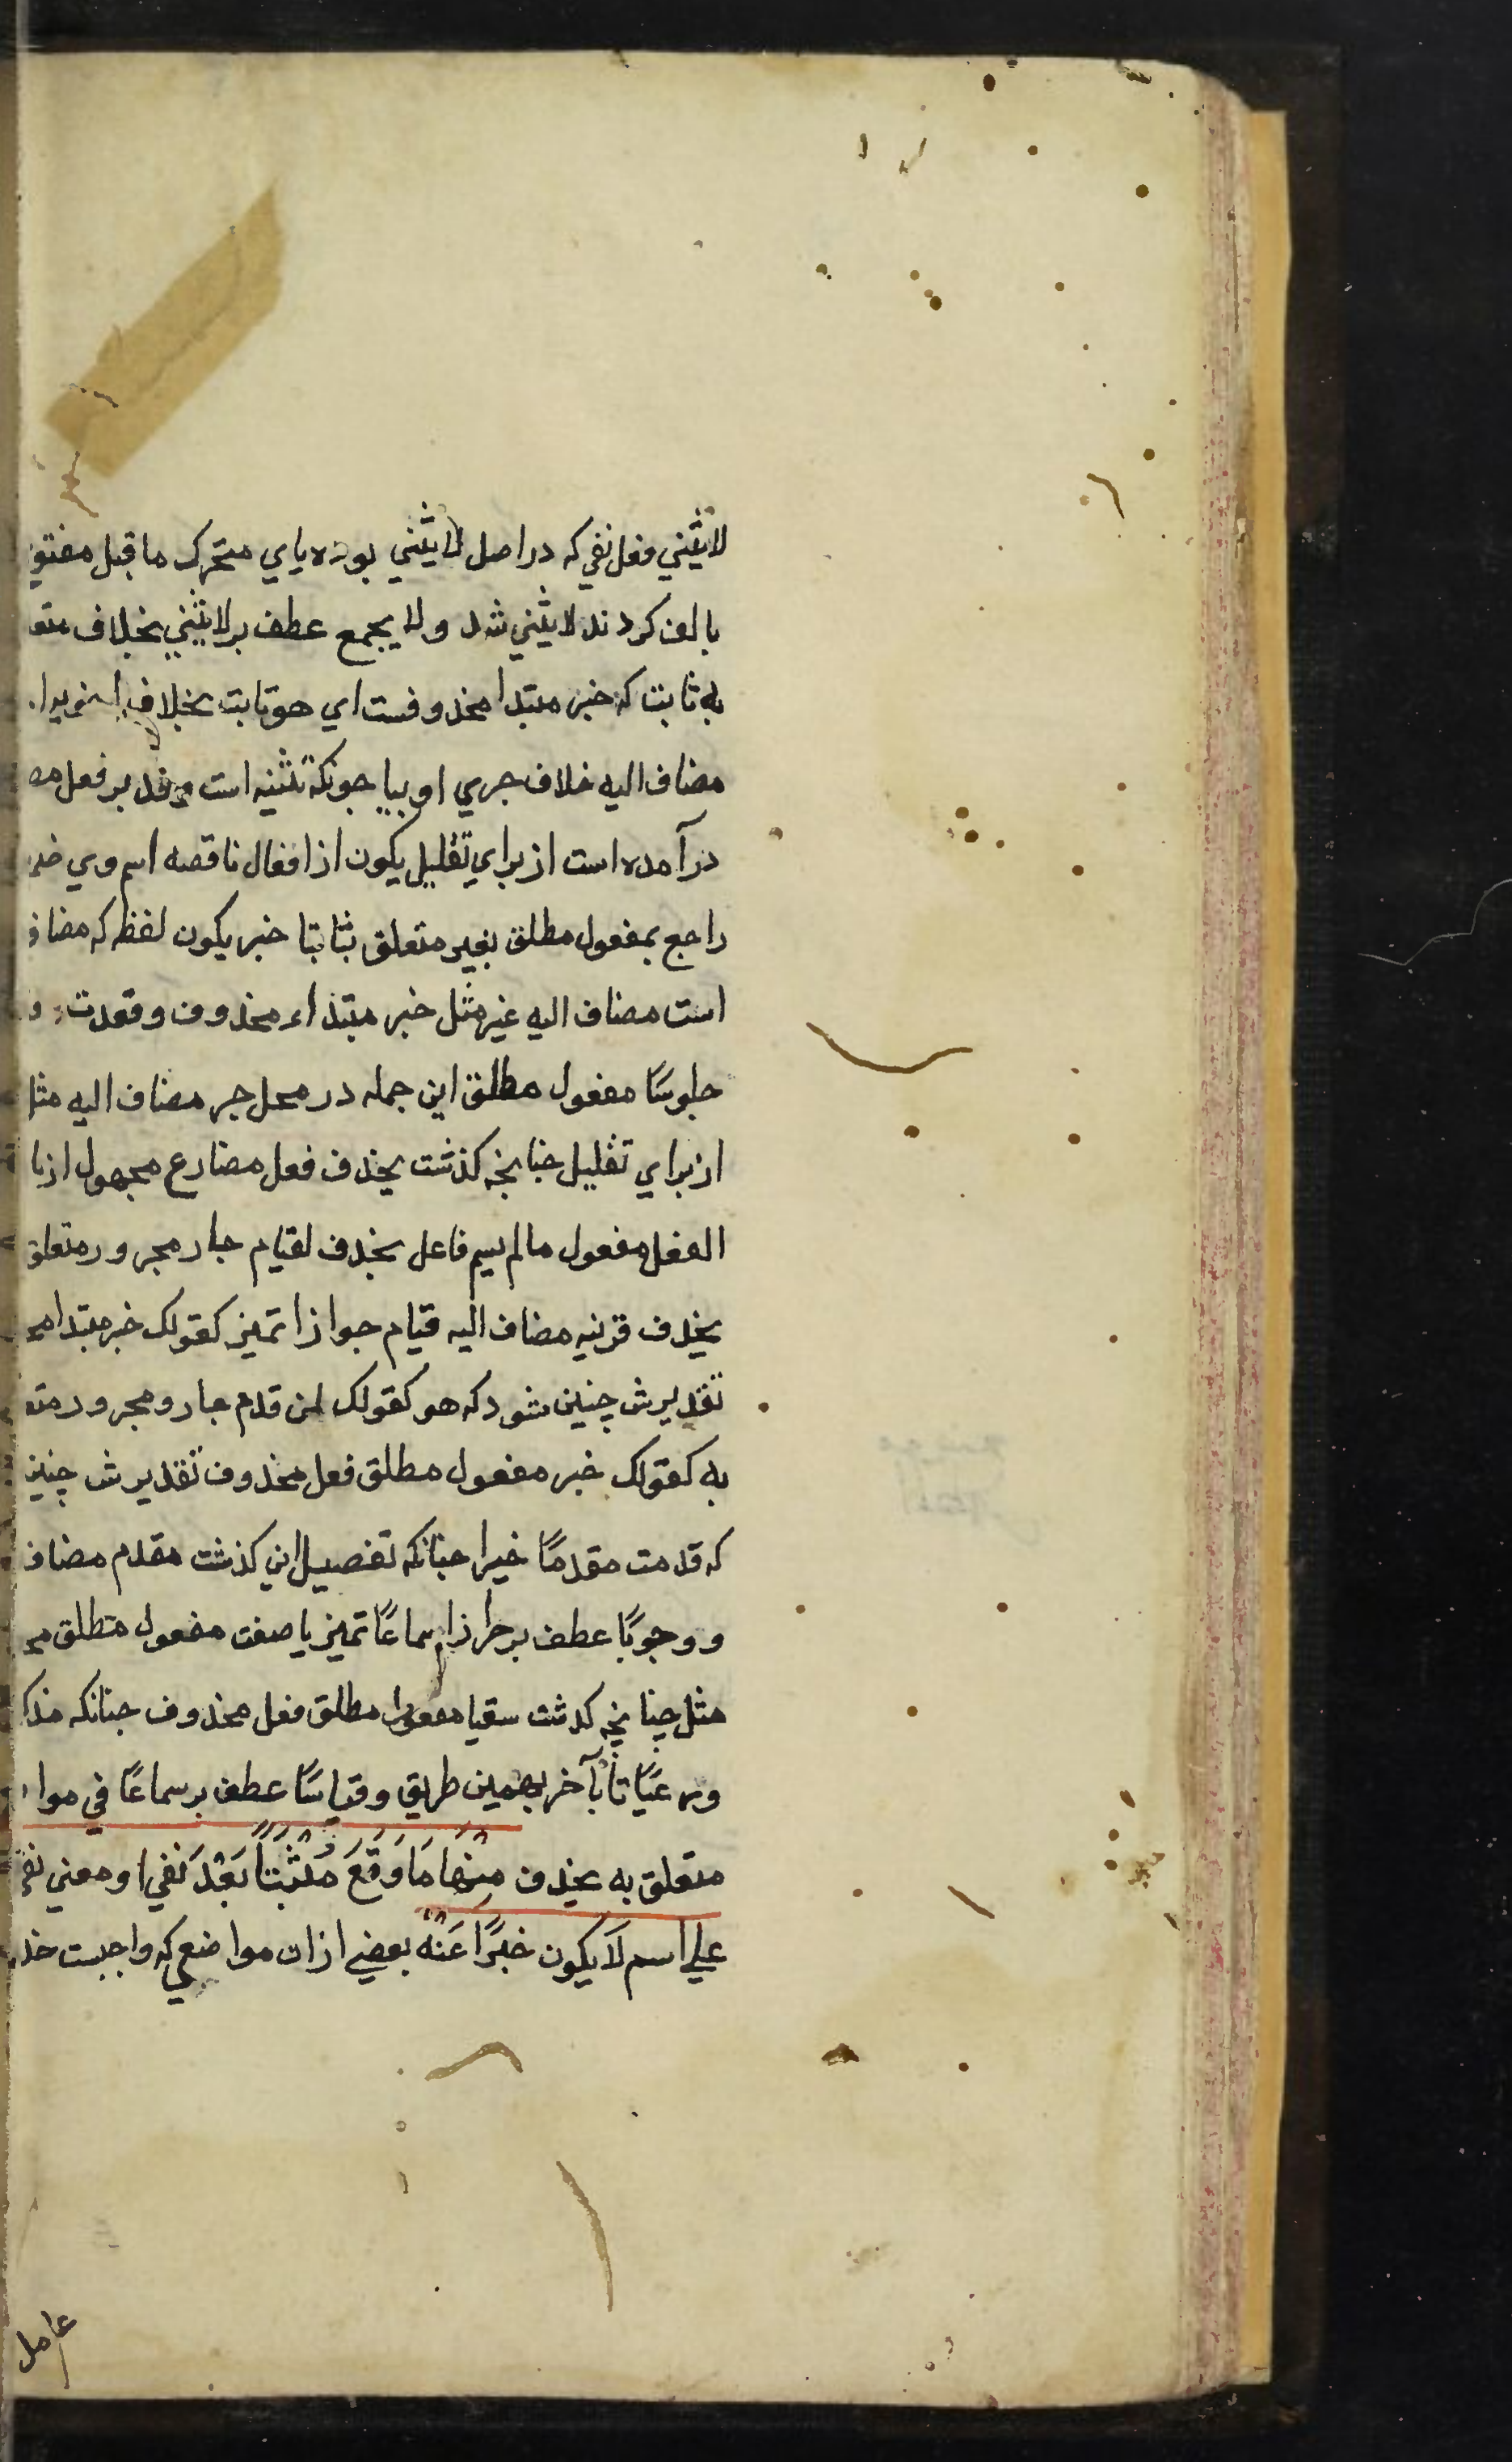 لايثني فعل نفي كه در اصل لايثني بوده ياي متحرك ما قبل مفتو
بالف كردند لايثني شد ولا يجمع عطف بر لايثني بخلاف متعا
به ثابت كه خبر مبتدا محذوفست اي هو ثابت بخلاف
مضاف اليه خلاف جري او بيا جونكه تثنيه است وقد بر فعل مض
درآمده است از براي تقليل يكون از افعال ناقصه اسم وي ضمـ
راجع بمفعول مطلق بغير متعلق بثابتا خبر يكون لفظ كه مضاف
است مضاف اليه غير مثل خبر مبتداء محذوف وقعدت و
جلوسًا مفعول مطلق اين جمله در محل جر مضاف اليه مثل
از براي تقليل چنانچه كذشت يحذف فعل مضارع مجهول از با
الفعل مفعول مالم يسم فاعل يحذف لقيام جار مجرور متعلق
يحذف قرنيه مضاف اليه قيام جوازا تميز كقولك خبر مبتدا مح
تقديرش چنين شود كه هو كقولك لمن قدم جار و مجرور متعـ
به كقولك خير مفعول مطلق فعل محذوف تقديرش چنين
كه قدمت مقدمًا خيرا چنانكه تفصيل اين كذشت مقدم مضاف
ووجوبًا عطف بر جوازا سماعًا تميز يا صفت مفعول مطلق مح
مثل چنانچه كدشت سقيا مفعول مطلق فعل محذوف جنانكه مذكـ
ورعيًا تا بآخر بهمين طريق وقياسًا عطف بر سماعًا في موا
متعلق به يحذف منهَا مَا وَقَعَ مُثْبَتًا بَعْدَ نَفي او معني نفي
علي اسم لَا يكون خَبَرًا عَنْهُ بعضي ازان مواضعي كه واجبست حذ
عامل